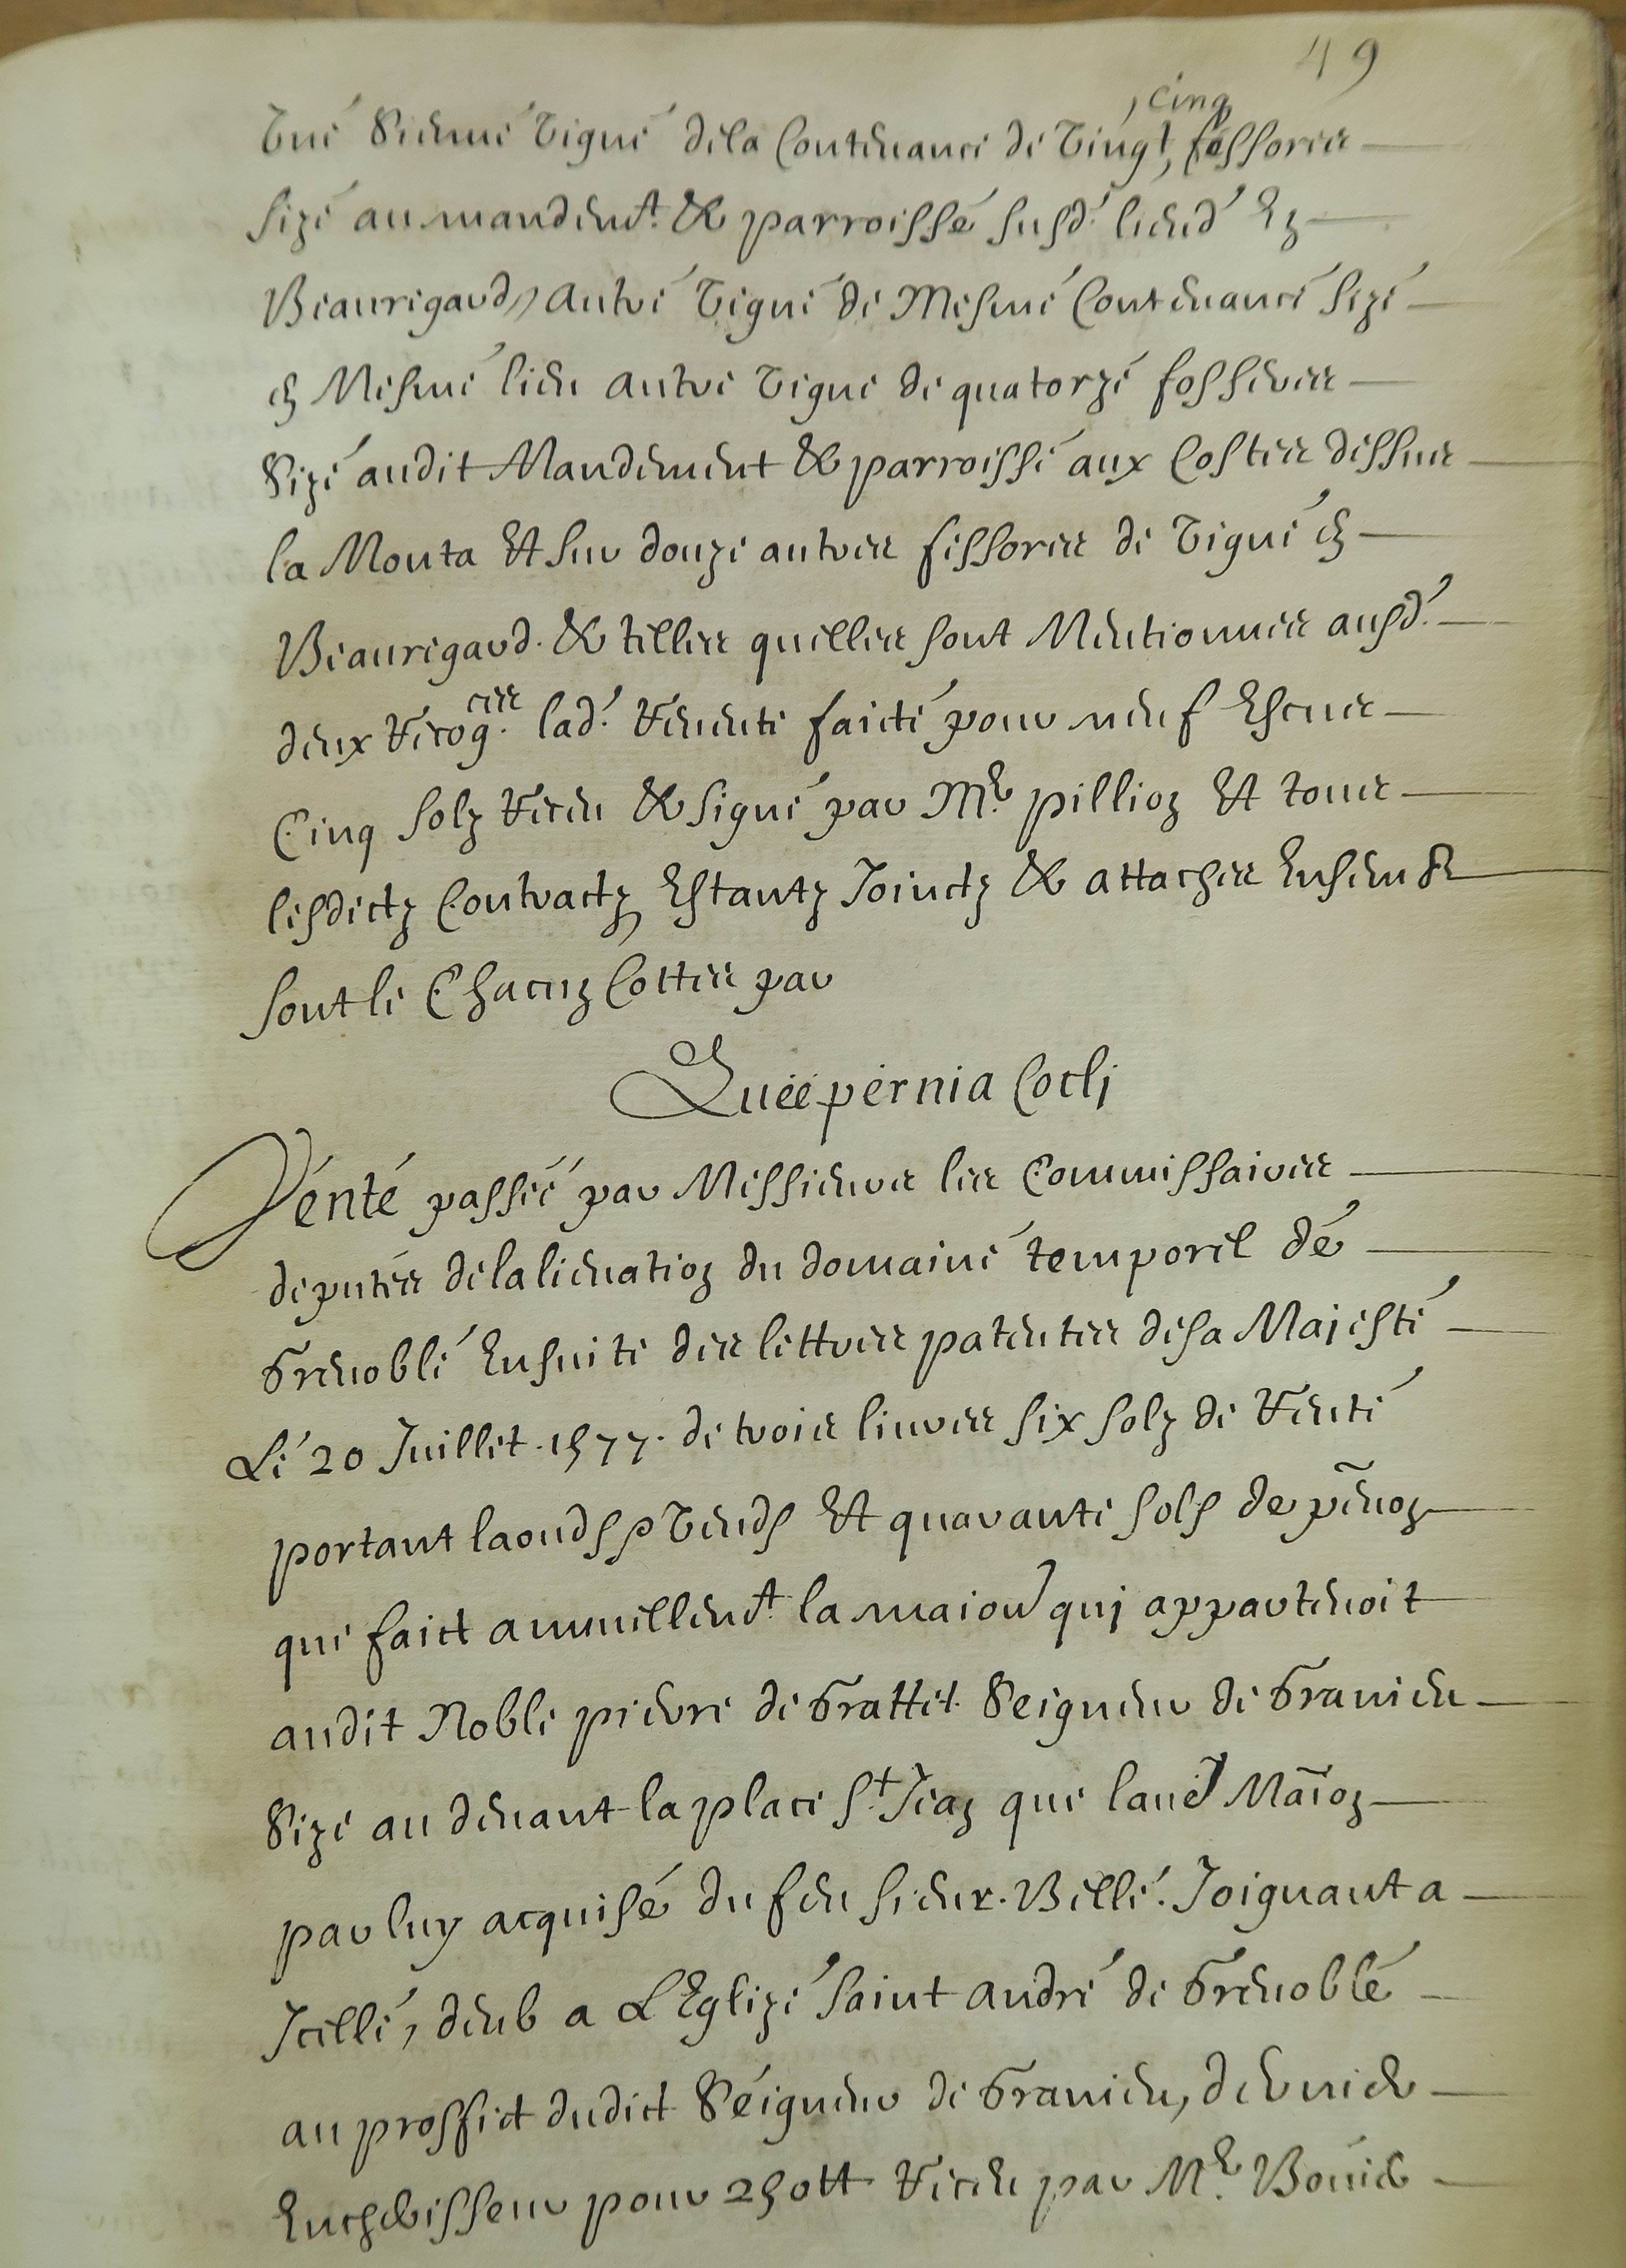 49
Vne sienne vigne dela Contenance de vingt, cinq fossorees
size au mandemt. & parroisse susd. lieud En
Beauregard, autre vigne de Mesme Contenance size
en Mesme lieu autre vigne de quatorze fosseures
Size audit Mandement & parroisse aux Costes dessus
la Mouta Et sur douze autres fessorees de vigne en
Beauregard. & telles quelles sont Mentionnees ausd.
deux recog.ces lad. Rente faicte pour neuf Escus
Cinq solz receu & signe par Mr. pillion Et tous
lesdictz Contractz Estantz Joinctz & attaches Ensemble
sont le Chacun Cottes par
Vente passee par Messieurs les Commissaires
deputes delalienation du domaine temporel de
Grenoble Ensuite des lettres patentes desa Majeste
Le 20 Juillet. 1577. de trois liures six solz de Rente
portant laouds & vends Et quarante sols de penon
que faict annuellemt. la maison qui appartenoit
audit Noble pierre de Grattet. Seigneur de Granieu
Size au deuant la place St. Jean que laued Maion
par luy acquise du feu sieur. Belle. Joignant a
Icelle, deub a L'Eglize saint andre de Grenoble
au proffict dudict Seigneur de Granieu, dernier
Encherisseur pour 250tt receu par Mr. Bouier